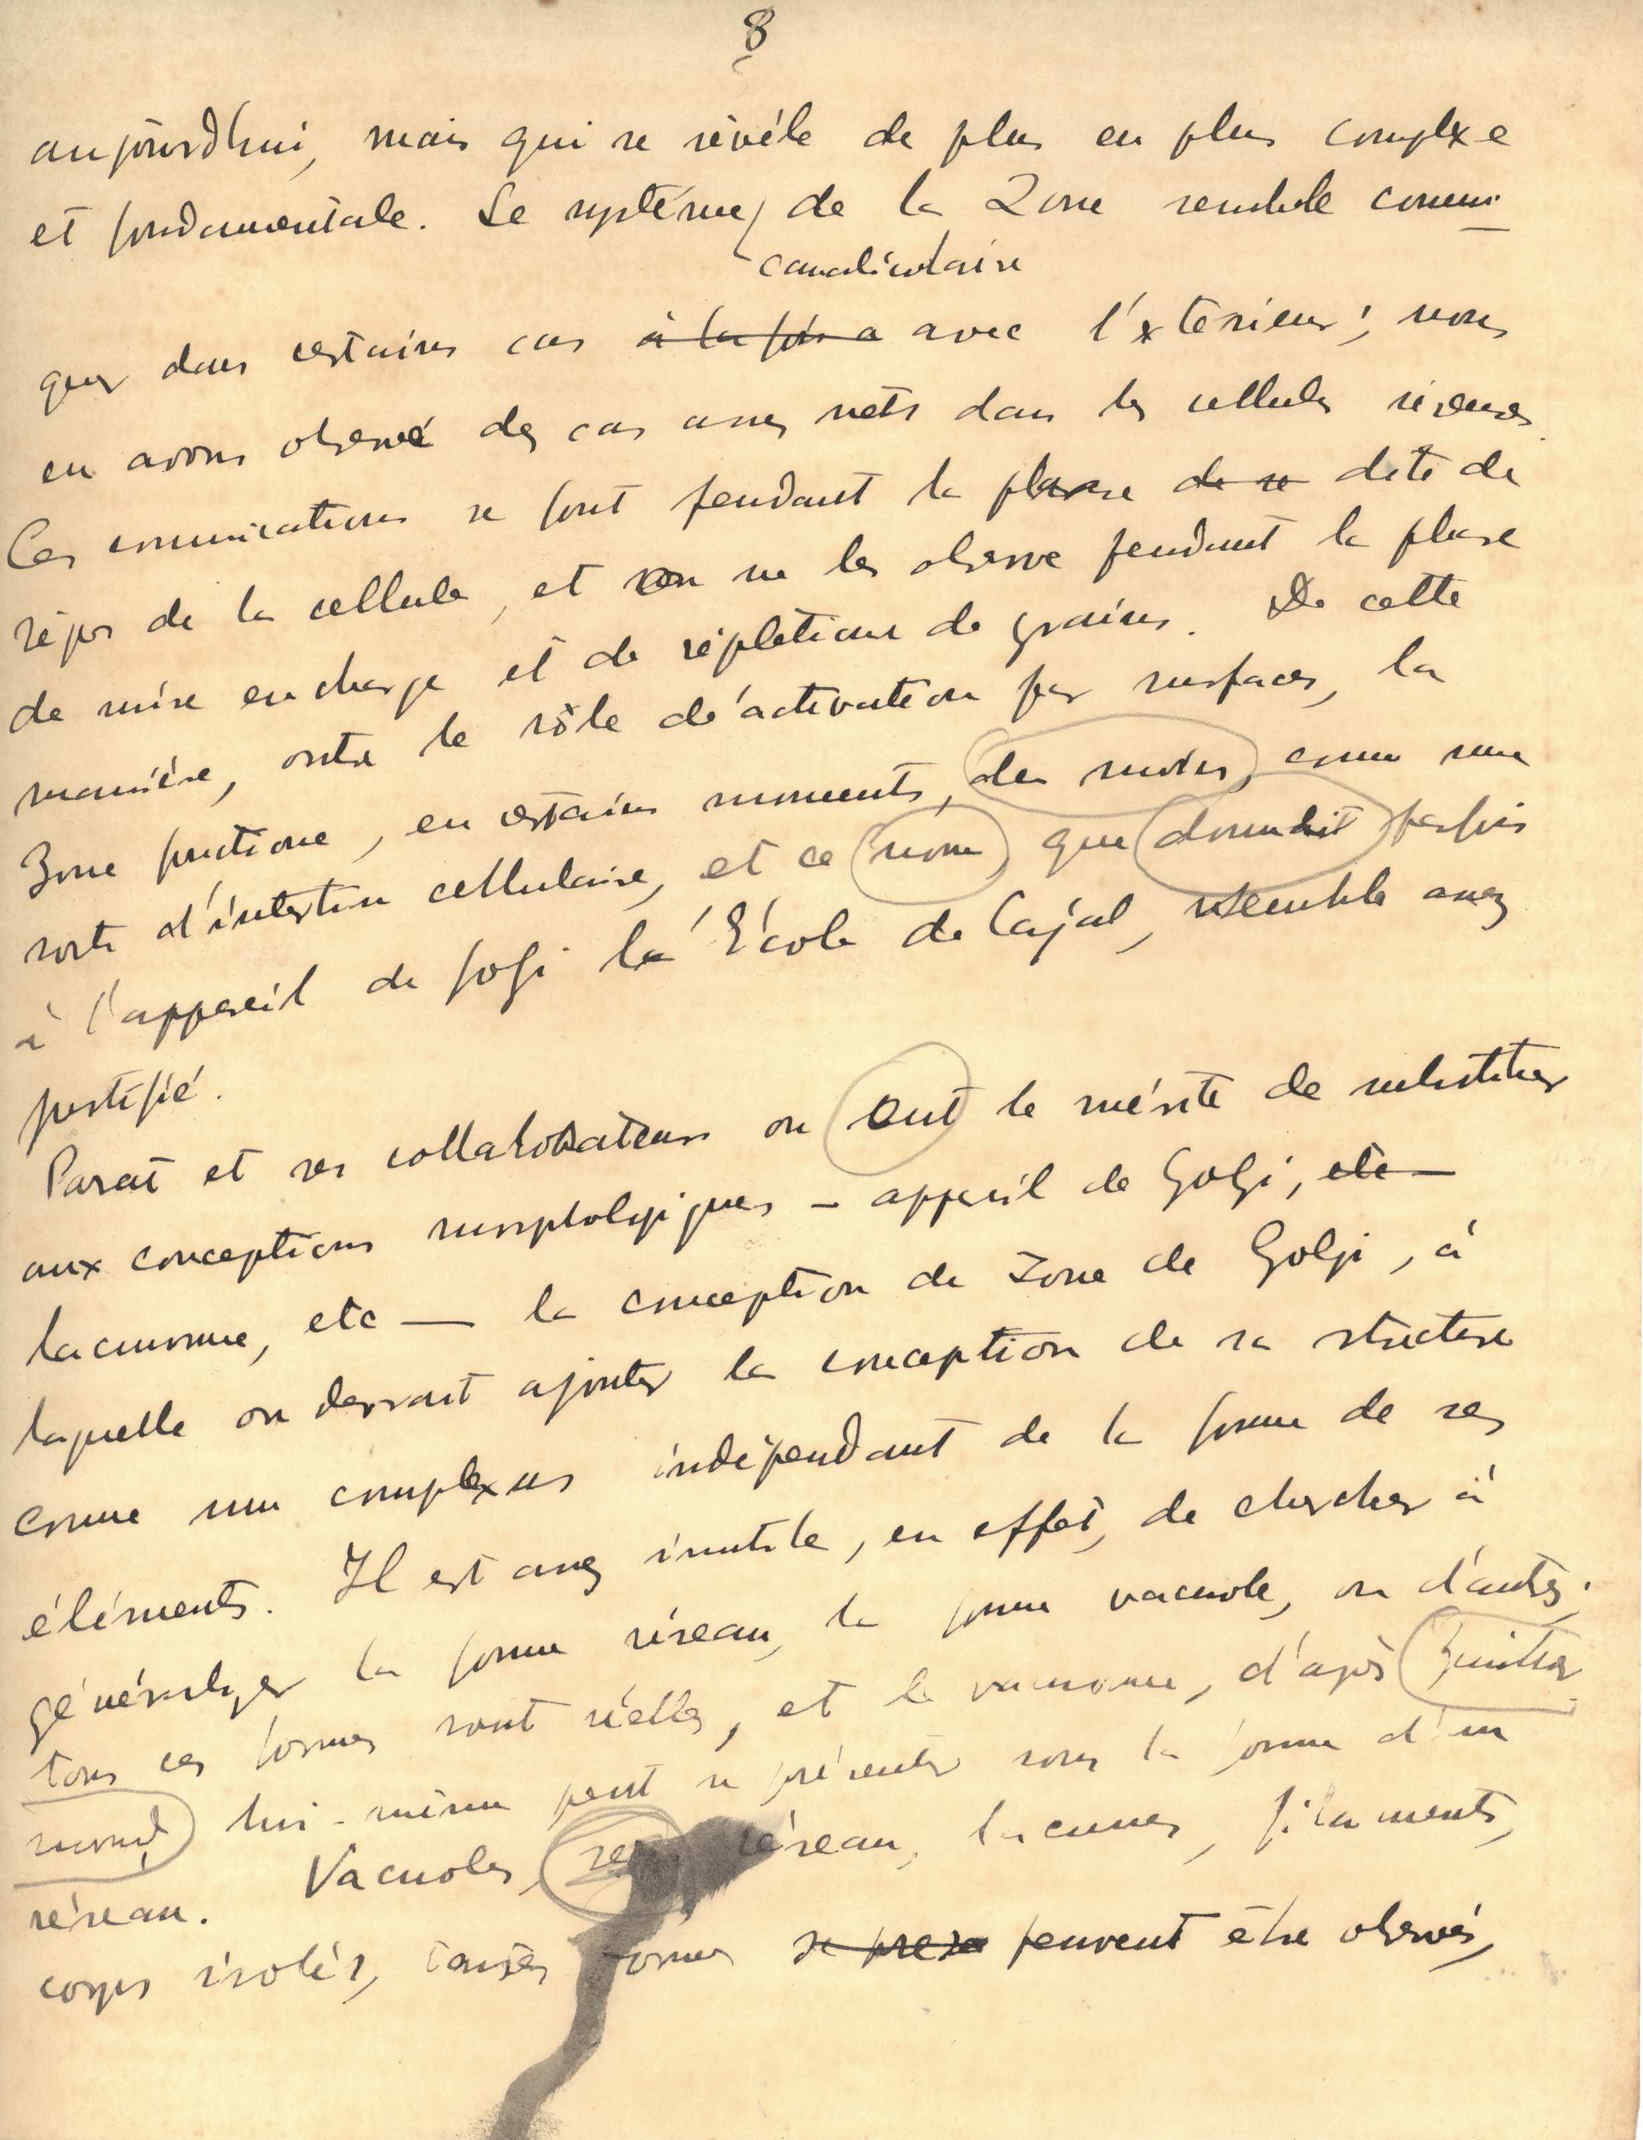 8
aujourdhui, mais qui se révéle de plus en plus complexe
et fondamentale. Le systéme de la Zone semble commu-
canaliculaire
quer dans certains cas à la fois a avec l'exterieur; nous
en avons observé des cas assez nets dans les cellules séreuses.
Ces comunications se font pendant la phase de re dite de
répos de la cellule, et on ne les observe pendant la phase
de mise en charge et de répletion de grains. De cette
manière, outre le rôle de activation par surfaces, la
Zone fonctione, en certains moments, des moins, come une
sorte d'intestin cellulaire, et ce nom que donnait parfois
à l'appareil de Golgi la École de Cajal, semble assez
justifié.
Parat et ses collaborateurs on eut le mérite de substituer
aux conceptions morphologiques - appareil de Golgi, etc —
lacunome, etc — la conception de zone de Golgi, à
laquelle on devrait ajouter la conception de sa structure
comme un complexus indépendant de la forme de ses
éléments. Il est assez inutile, en effet, de chercher à
généraliser la forme réseau, la forme vacuole, ou d'autres;
tous ces formes sont réelles, et le vacuome, d'après Guillier
mond, lui-même peut se présenter sous la forme d'un
réseau. Vacuoles, res réseau, lacunes, filaments,
corps isolés, toutes formes se prese peuvent être observés,